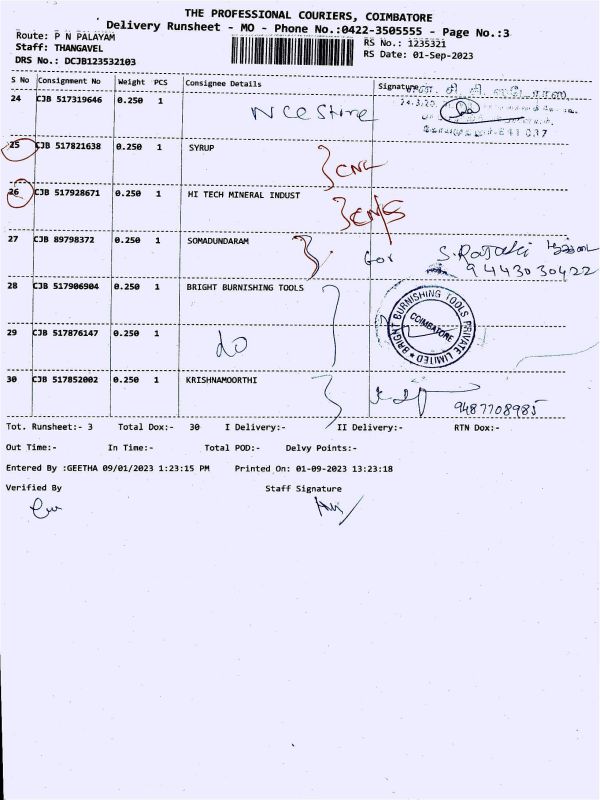 THE PROFESSIONAL COURIERS, COIMBATORE
Delivery Runsheet - MO - Phone No.:0422-3505555 - Page No.:3
Route: P N PALAYAM
RS No.: 1235321
Staff: THANGAVEL
RS Date: 01-Sep-2023
DRS No.: DCJB123532103
S No Consignment No Weight PCS Consignee Details Signature
24 CJB 517319646 0.250 1
25 CJB 517821638 0.250 1 SYRUP
CNL
26 CJB 517928671 0.250 1 HI TECH MINERAL INDUST
27 CJB 89798372 0.250 1 SOMADUNDARAM
for
9443030422
28 CJB 517906904 0.250 1 BRIGHT BURNISHING TOOLS
BRIGHT BURNISHING TOOLS PRIVATE LIMITED
COIMBATORE
29 CJB 517876147 0.250 1
do
30 CJB 517852002 0.250 1 KRISHNAMOORTHI
9487708985
Tot. Runsheet:- 3 Total Dox:- 30 I Delivery:- II Delivery:- RTN Dox:-
Out Time:- In Time:- Total POD:- Delvy Points:-
Entered By :GEETHA 09/01/2023 1:23:15 PM Printed On: 01-09-2023 13:23:18
Verified By Staff Signature